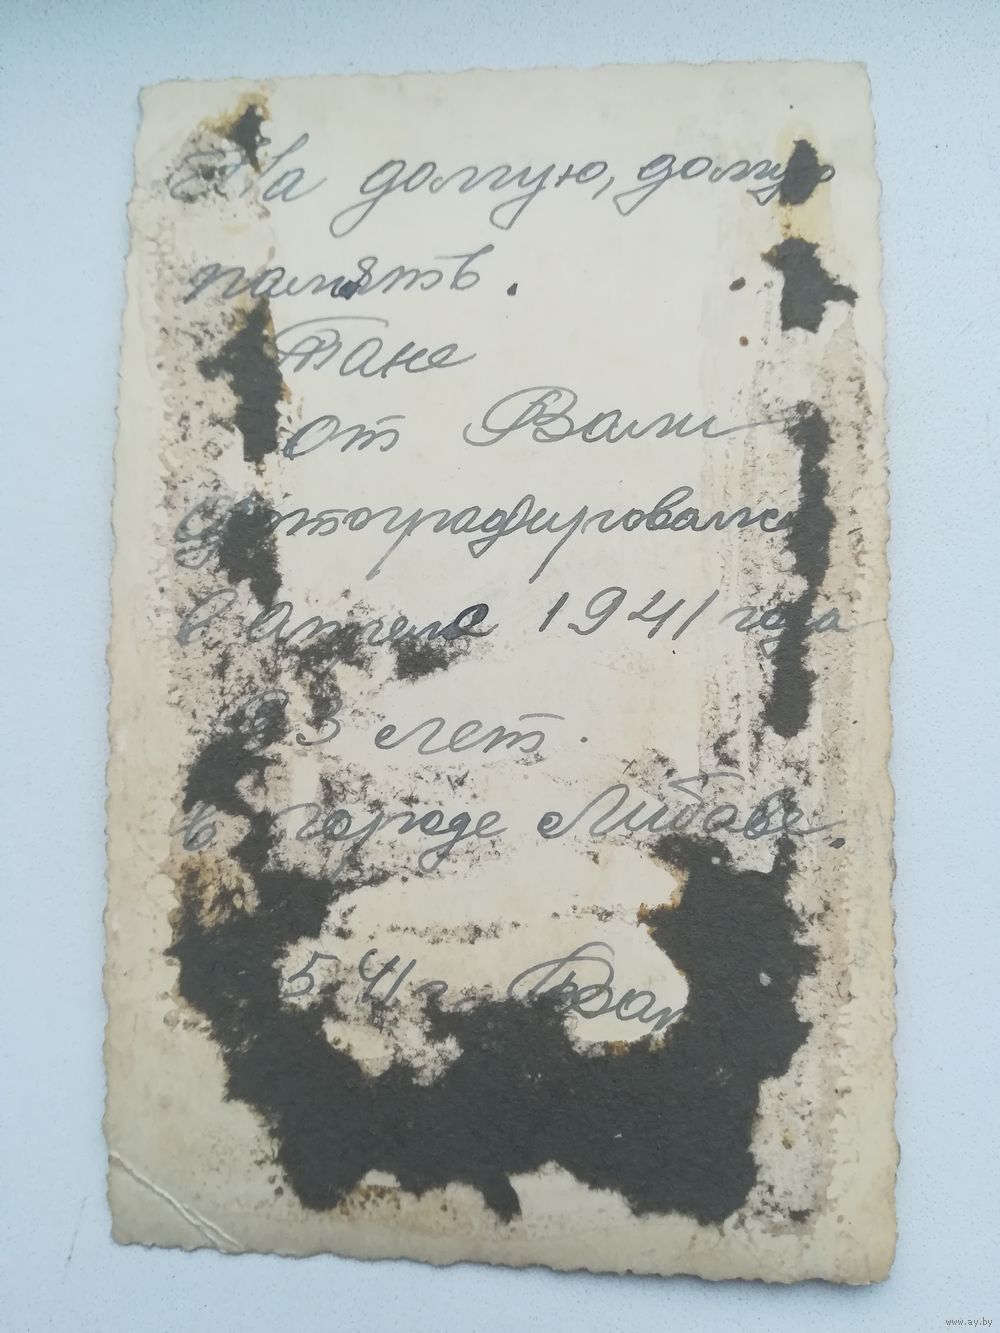 На долгую, долгую
память.
Тане
от Вали
фотографировались
в апреле 1941 года
23 лет.
в городе Либаве.
5 41 г. Вал
www.ay.by